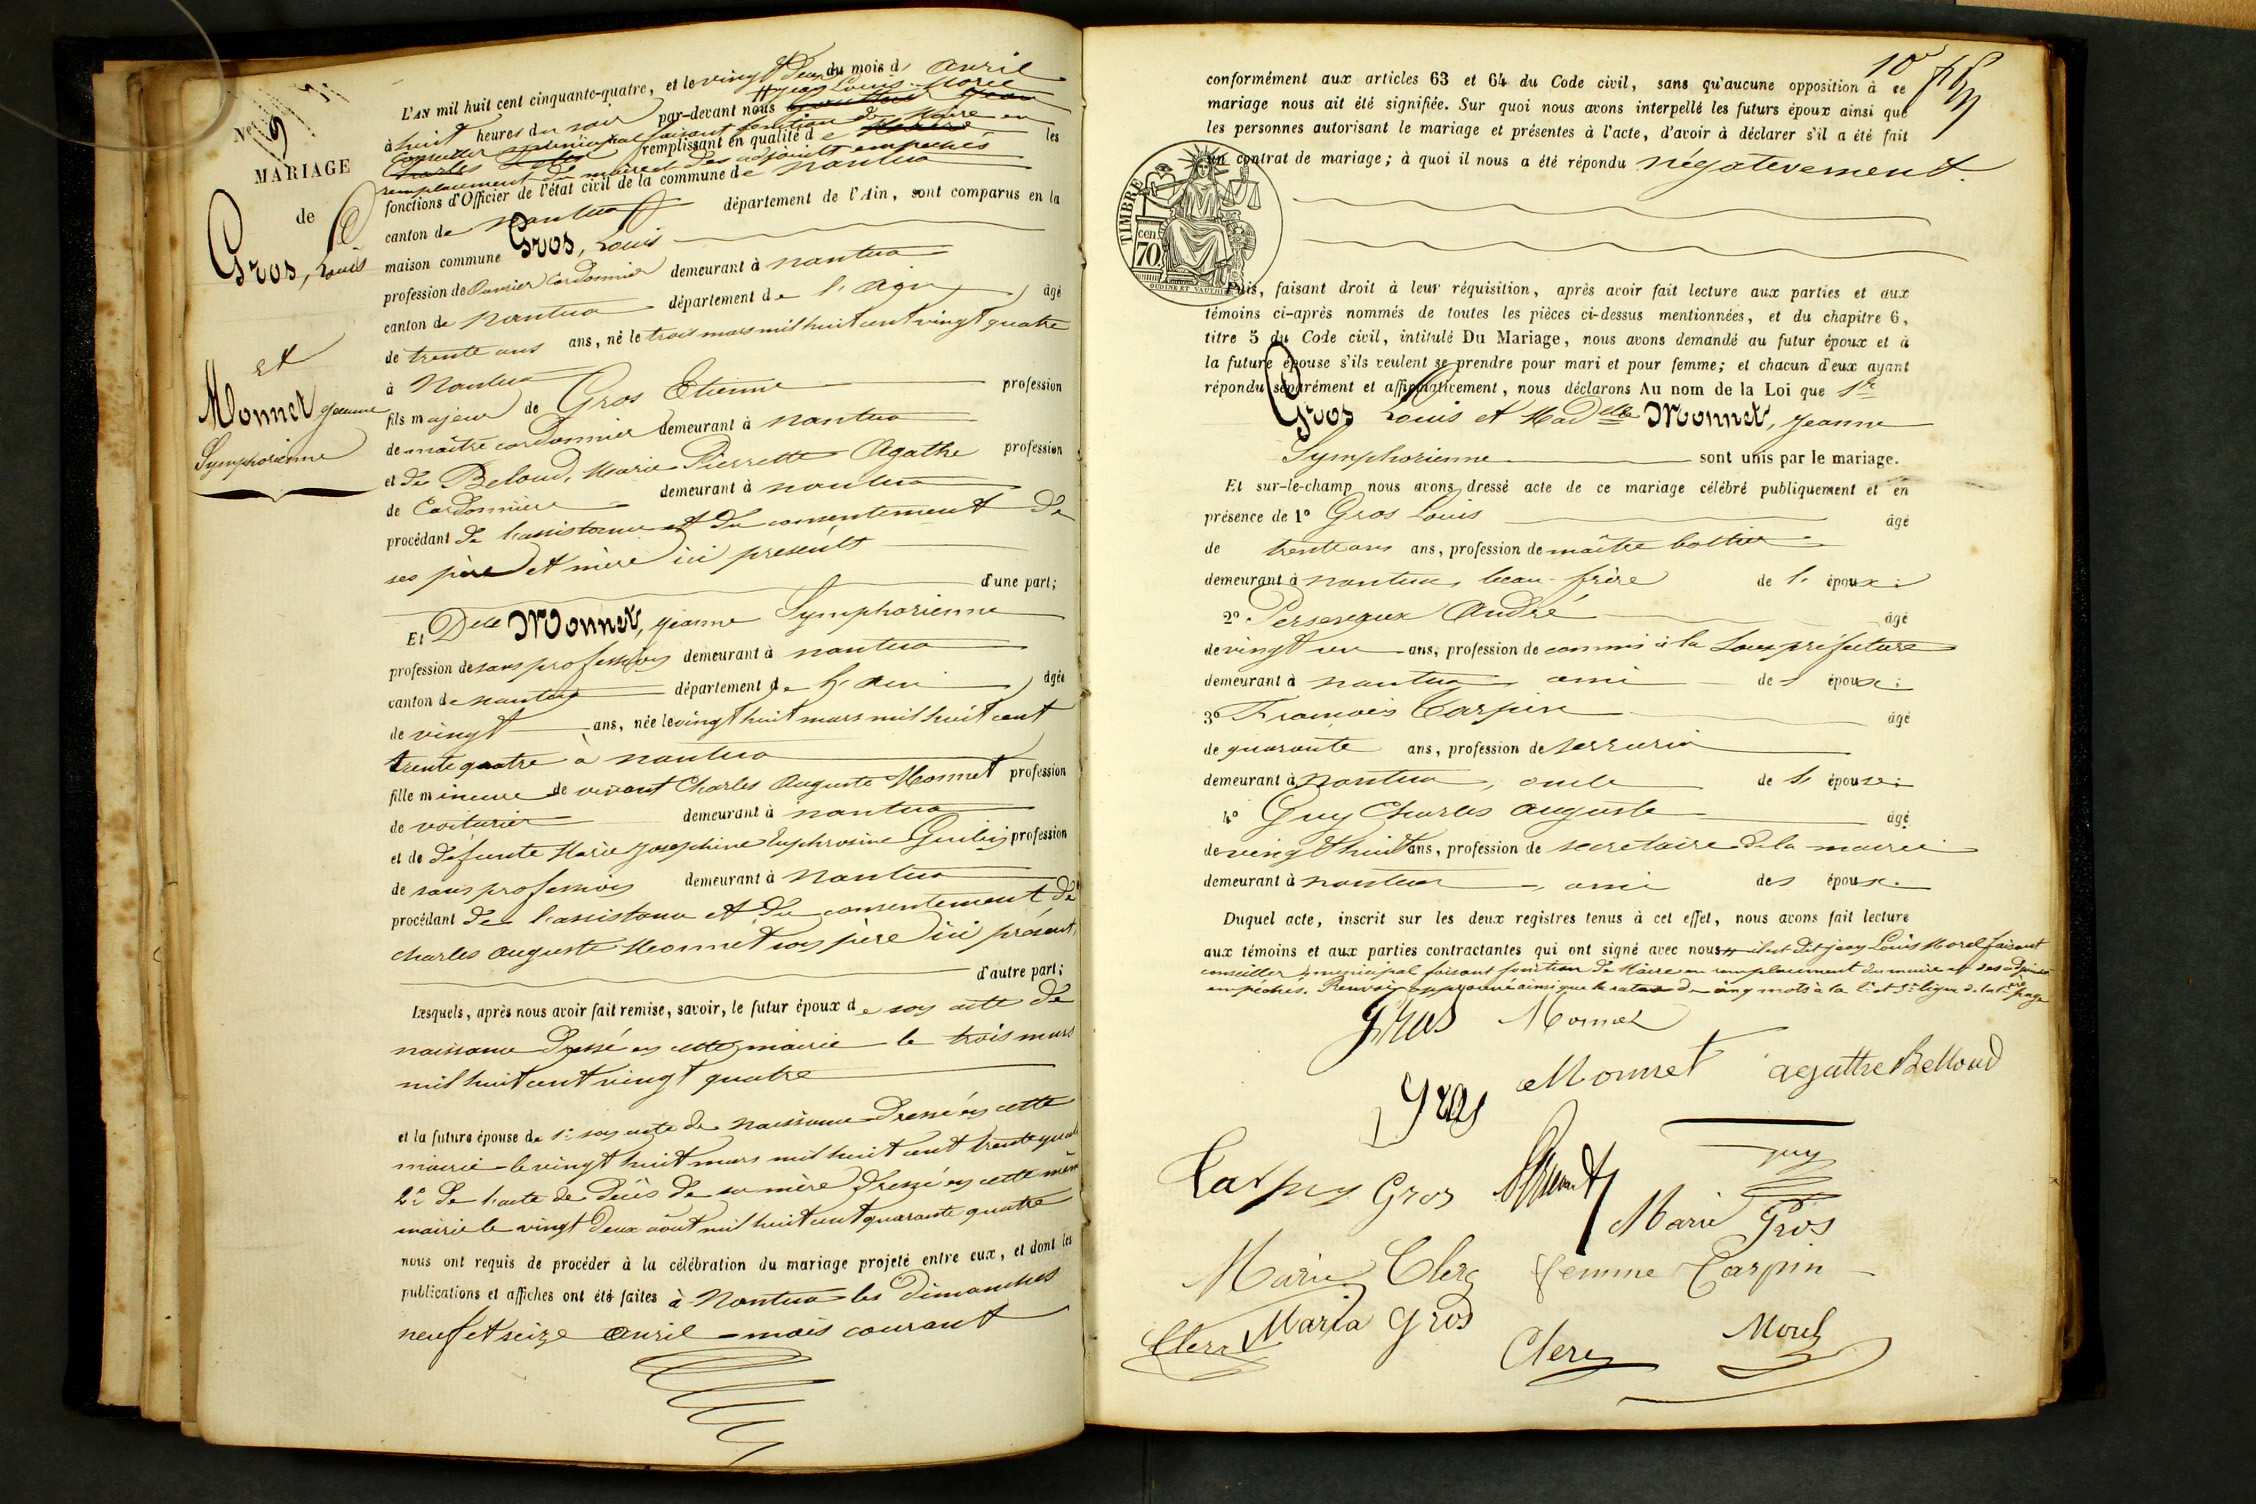 No 9
MARIAGE
de
Gros, Louis
et
Monnet Jeanne
Symphorienne
L'AN mil huit cent cinquante-quatre, et le vingt deux du mois d' avril
Jean Louis Morel
à huit heures du soir par-devant nous
conseiller municipal faisant fonction de Maire en
remplissant en qualité de les
remplacement du maire et des adjoints empêchés
fonctions d'Officier de l'état civil de la commune de nantua
canton de nantua département de l'Ain, sont comparus en la
maison commune Gros, Louis
profession de ouvrier cordonnier demeurant à nantua
canton de nantua département de l'Ain, âgé
de trente ans ans, né le trois mars mil huit cent vingt quatre
à Nantua
fils majeur de Gros Etienne profession
de maître cordonnier demeurant à nantua
et de Beloud, Marie Pierrette Agathe profession
de Cordonnière demeurant à nantua
procédant de l'assistance et du consentement de
ses père et mère ici présents
d'une part;
Et Delle Monnet, Jeanne Symphorienne
profession de sans profession demeurant à nantua
canton de nantua département de l'Ain, âgée
de vingt ans, née le vingt huit mars mil huit cent
trente quatre à nantua
fille mineure de vivant Charles Auguste Monnet profession
de voiturier demeurant à nantua
et de défunte Marie Josephine Euphrosine profession
de sans profession demeurant à Nantua
procédant de l'assistance et du consentement de
charles auguste Monnet son père ici présent,
d'autre part;
Lesquels, après nous avoir fait remise, savoir, le futur époux de son acte de
naissance dressé en cette mairie le trois mars
mil huit cent vingt quatre
et la future épouse de 1o son acte de naissance dressé en cette
mairie le vingt huit mars mil huit cent trente quatre
2o de l'acte de décès de sa mère dressé en cette même
mairie le vingt deux août mil huit cent quarante quatre
nous ont requis de procéder à la célébration du mariage projeté entre eux, et dont les
publications et affiches ont été faites à Nantua les dimanches
neuf et seize avril mois courant
10
conformément aux articles 63 et 64 du Code civil, sans qu'aucune opposition à ce
mariage nous ait été signifiée. Sur quoi nous avons interpellé les futurs époux ainsi que
les personnes autorisant le mariage et présentes à l'acte, d'avoir à déclarer s'il a été fait
un contrat de mariage; à quoi il nous a été répondu négativement.
TIMBRE
cen.
70
Puis, faisant droit à leur réquisition, après avoir fait lecture aux parties et aux
témoins ci-après nommés de toutes les pièces ci-dessus mentionnées, et du chapitre 6,
titre 5 du Code civil, intitulé Du Mariage, nous avons demandé au futur époux et à
la future épouse s'ils veulent se prendre pour mari et pour femme; et chacun d'eux ayant
répondu séparément et affirmativement, nous déclarons Au nom de la Loi que Sr
Gros Louis et Madelle Monnet, Jeanne
Symphorienne sont unis par le mariage.
Et sur-le-champ nous avons dressé acte de ce mariage célébré publiquement et en
présence de 1o Gros Louis âgé
de trente ans ans, profession de maître bottier
demeurant à nantua, beau-frère de l' époux;
2o André âgé
de vingt un ans, profession de commis à la Sous préfecture
demeurant à nantua ami des époux;
3o François Carpin âgé
de quarante ans, profession de serrurier
demeurant à nantua, oncle de l' épouse;
4o Guy Charles auguste âgé
de vingt huit ans, profession de secretaire de la mairie
demeurant à nantua, ami des époux.
Duquel acte, inscrit sur les deux registres tenus à cet effet, nous avons fait lecture
aux témoins et aux parties contractantes qui ont signé avec nous Jean Louis Morel faisant
conseiller municipal faisant fonction de Maire en remplacement du maire et des adjoints
empêchés. Renvoi approuvé ainsi que la rature de cinq mots à la 1e et 3e ligne de la 1ère page
Gros Monnet
Gros Monnet agathe Belloud
Carpin Gros guy
Marie Gros
Marie Clerc femme Carpin
Clerc Maria gros Clerc Morel